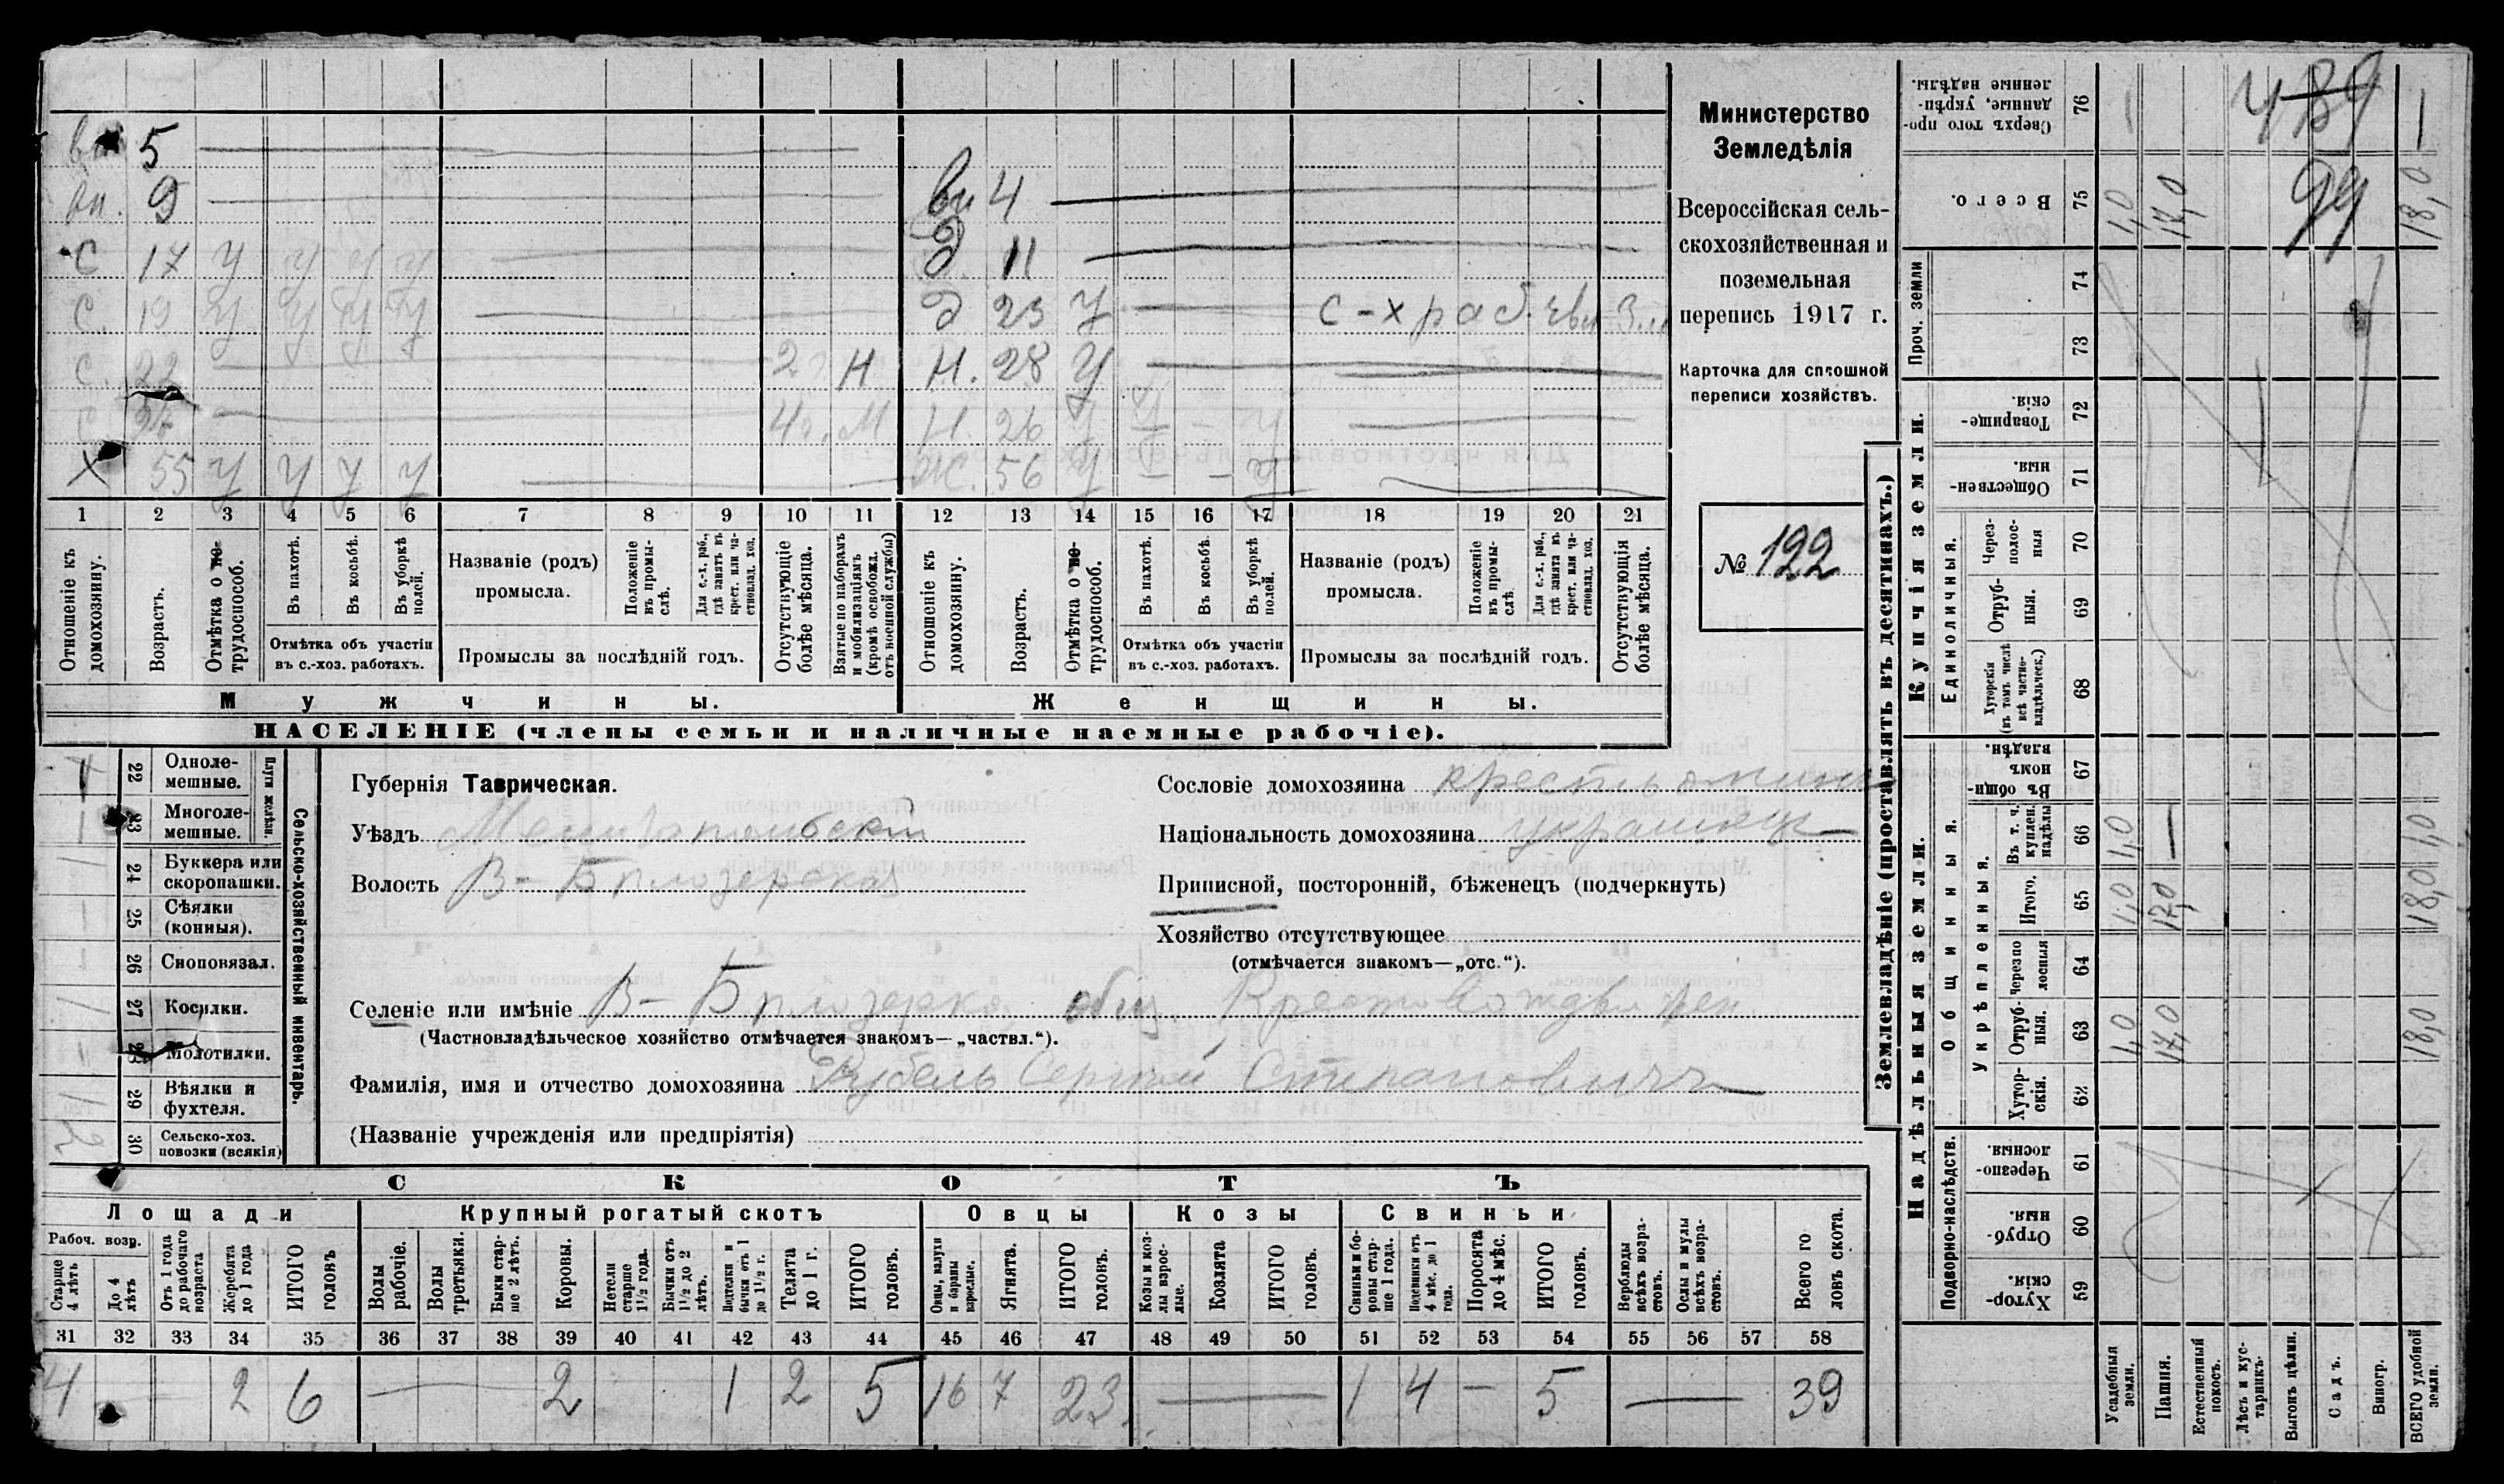 вн 5
вн. 9 вн 4
С 17 У У У У д 11
С. 19 У У У У д 23 У с-х раб.
С. 22 2 Н Н. 28 У
С М Н. 26 У У - У
Х 55 У У У У Ж. 56 У - У
1 2 3 4 5 6 7 8 9 10 11 12 13 14 15 16 17 18 19 20 21
Отношеніе къ домохозяину.
Возрастъ.
Отмѣтка о не-трудоспособ.
Въ пахотѣ.
Въ косьбѣ.
Въ уборкѣ полей.
Отмѣтка объ участіи
въ с.-хоз. работахъ.
Названіе (родъ)
промысла.
Положеніе въ промы-слѣ.
Для с.-х. раб., гдѣ занятъ въ крест. или ча-стновлад. хоз.
Промыслы за послѣдній годъ.
Отсутствующіе болѣе мѣсяца.
Взятые по наборамъ и мобилизаціямъ (кромѣ освобожд. отъ военной службы)
Отношеніе къ домохозяину.
Возрастъ.
Отмѣтка о не-трудоспособ.
Въ пахотѣ.
Въ косьбѣ.
Въ уборкѣ полей.
Отмѣтка объ участіи
въ с.-хоз. работахъ.
Названіе (родъ)
промысла.
Положеніе въ промы-слѣ.
Для с.-х. раб., гдѣ занята въ крест. или ча-стновлад. хоз.
Промыслы за послѣдній годъ.
Отсутствующія болѣе мѣсяца.
Мужчины. Женщины.
НАСЕЛЕНІЕ (члены семьи и наличные наемные рабочіе).
Министерство
Земледѣлія
Всероссійская сель-
скохозяйственная и
поземельная
перепись 1917 г.
Карточка для сплошной
переписи хозяйствъ.
№ 122
Сельско-хозяйственный инвентарь.
Плуги желѣзн.
22 Одноле-мешные. 1
23 Многоле-мешные. 1
24 Буккера или скоропашки.
25 Сѣялки (конныя).
26 Сноповязал.
27 Косилки.
28 Молотилки.
29 Вѣялки и фухтеля.
30 Сельско-хоз. повозки (всякія)
Губернія Таврическая.
Уѣздъ Мелитопольскій
Волость В-Бѣлозерская
Сословіе домохозяина крестьянинъ
Національность домохозяина украинецъ
Приписной, посторонній, бѣженецъ (подчеркнуть)
Хозяйство отсутствующее
(отмѣчается знакомъ—„отс.“).
Селеніе или имѣніе В-Бѣлозерка, общ. Крестовоздвижен.
(Частновладѣльческое хозяйство отмѣчается знакомъ—„частвл.“).
Фамилія, имя и отчество домохозяина Рубель Сергѣй Степановичъ
(Названіе учрежденія или предпріятія)
СКОТЪ
Лошади Крупный рогатый скотъ Овцы Козы Свиньи
Рабоч. возр.
Старше 4 лѣтъ
До 4 лѣтъ
Отъ 1 года до рабочаго возраста
Жеребята до 1 года
ИТОГО головъ
Волы рабочіе.
Волы третьяки.
Быки стар-ше 2 лѣтъ.
Коровы.
Нетели старше 1½ года.
Бычки отъ 1½ до 2 лѣтъ.
Подтелки и бычки отъ 1 до 1½ г.
Телята до 1 г.
ИТОГО головъ.
Овцы, валухи и бараны взрослые.
Ягнята.
ИТОГО головъ.
Козы и коз-лы взрос-лые.
Козлята
ИТОГО головъ.
Свиньи и бо-ровы стар-ше 1 года.
Подсвинки отъ 4 мѣс. до 1 года.
Поросята до 4 мѣс.
ИТОГО головъ.
Верблюды всѣхъ возра-стовъ.
Ослы и мулы всѣхъ возра-стовъ.
Всего го ловъ скота.
31 32 33 34 35 36 37 38 39 40 41 42 43 44 45 46 47 48 49 50 51 52 53 54 55 56 57 58
4 — 2 6 — 2 1 2 5 16 7 23. — 1 4 — 5 — 39
Землевладѣніе (проставлять въ десятинахъ.)
Надѣльныя земли. Купчія земли. Проч. земли
Подворно-наслѣдств.
Общинныя.
Укрѣпленныя.
Единоличныя.
76 Сверхъ того про-данные, укрѣп-ленные надѣлы. —
75 Всего. 1,0 17,0 18,0
74
73
72 Товарище-скія.
71 Обществен-ныя.
70 Через-полос-ныя
69 Отруб-ныя.
68 Хуторскія (въ томъ числѣ всѣ частно-владѣльческ.)
67 Въ общин-номъ владѣн.
66 Въ т. ч. куплен. надѣлы 1,0 — 1,0
65 Итого. 1,0 17,0 18,0
64 Черезпо лосныя
63 Отруб-ныя. 1,0 17,0 18,0
62 Хутор-скія.
61 Черезпо-лосныя.
60 Отруб-ныя.
59 Хутор-скія.
Усадебныя земли.
Пашня.
Естественный покосъ.
Лѣсъ и кус-тарникъ.
Выгонъ цѣлин.
Садъ.
Виногр.
ВСЕГО удобной земли.